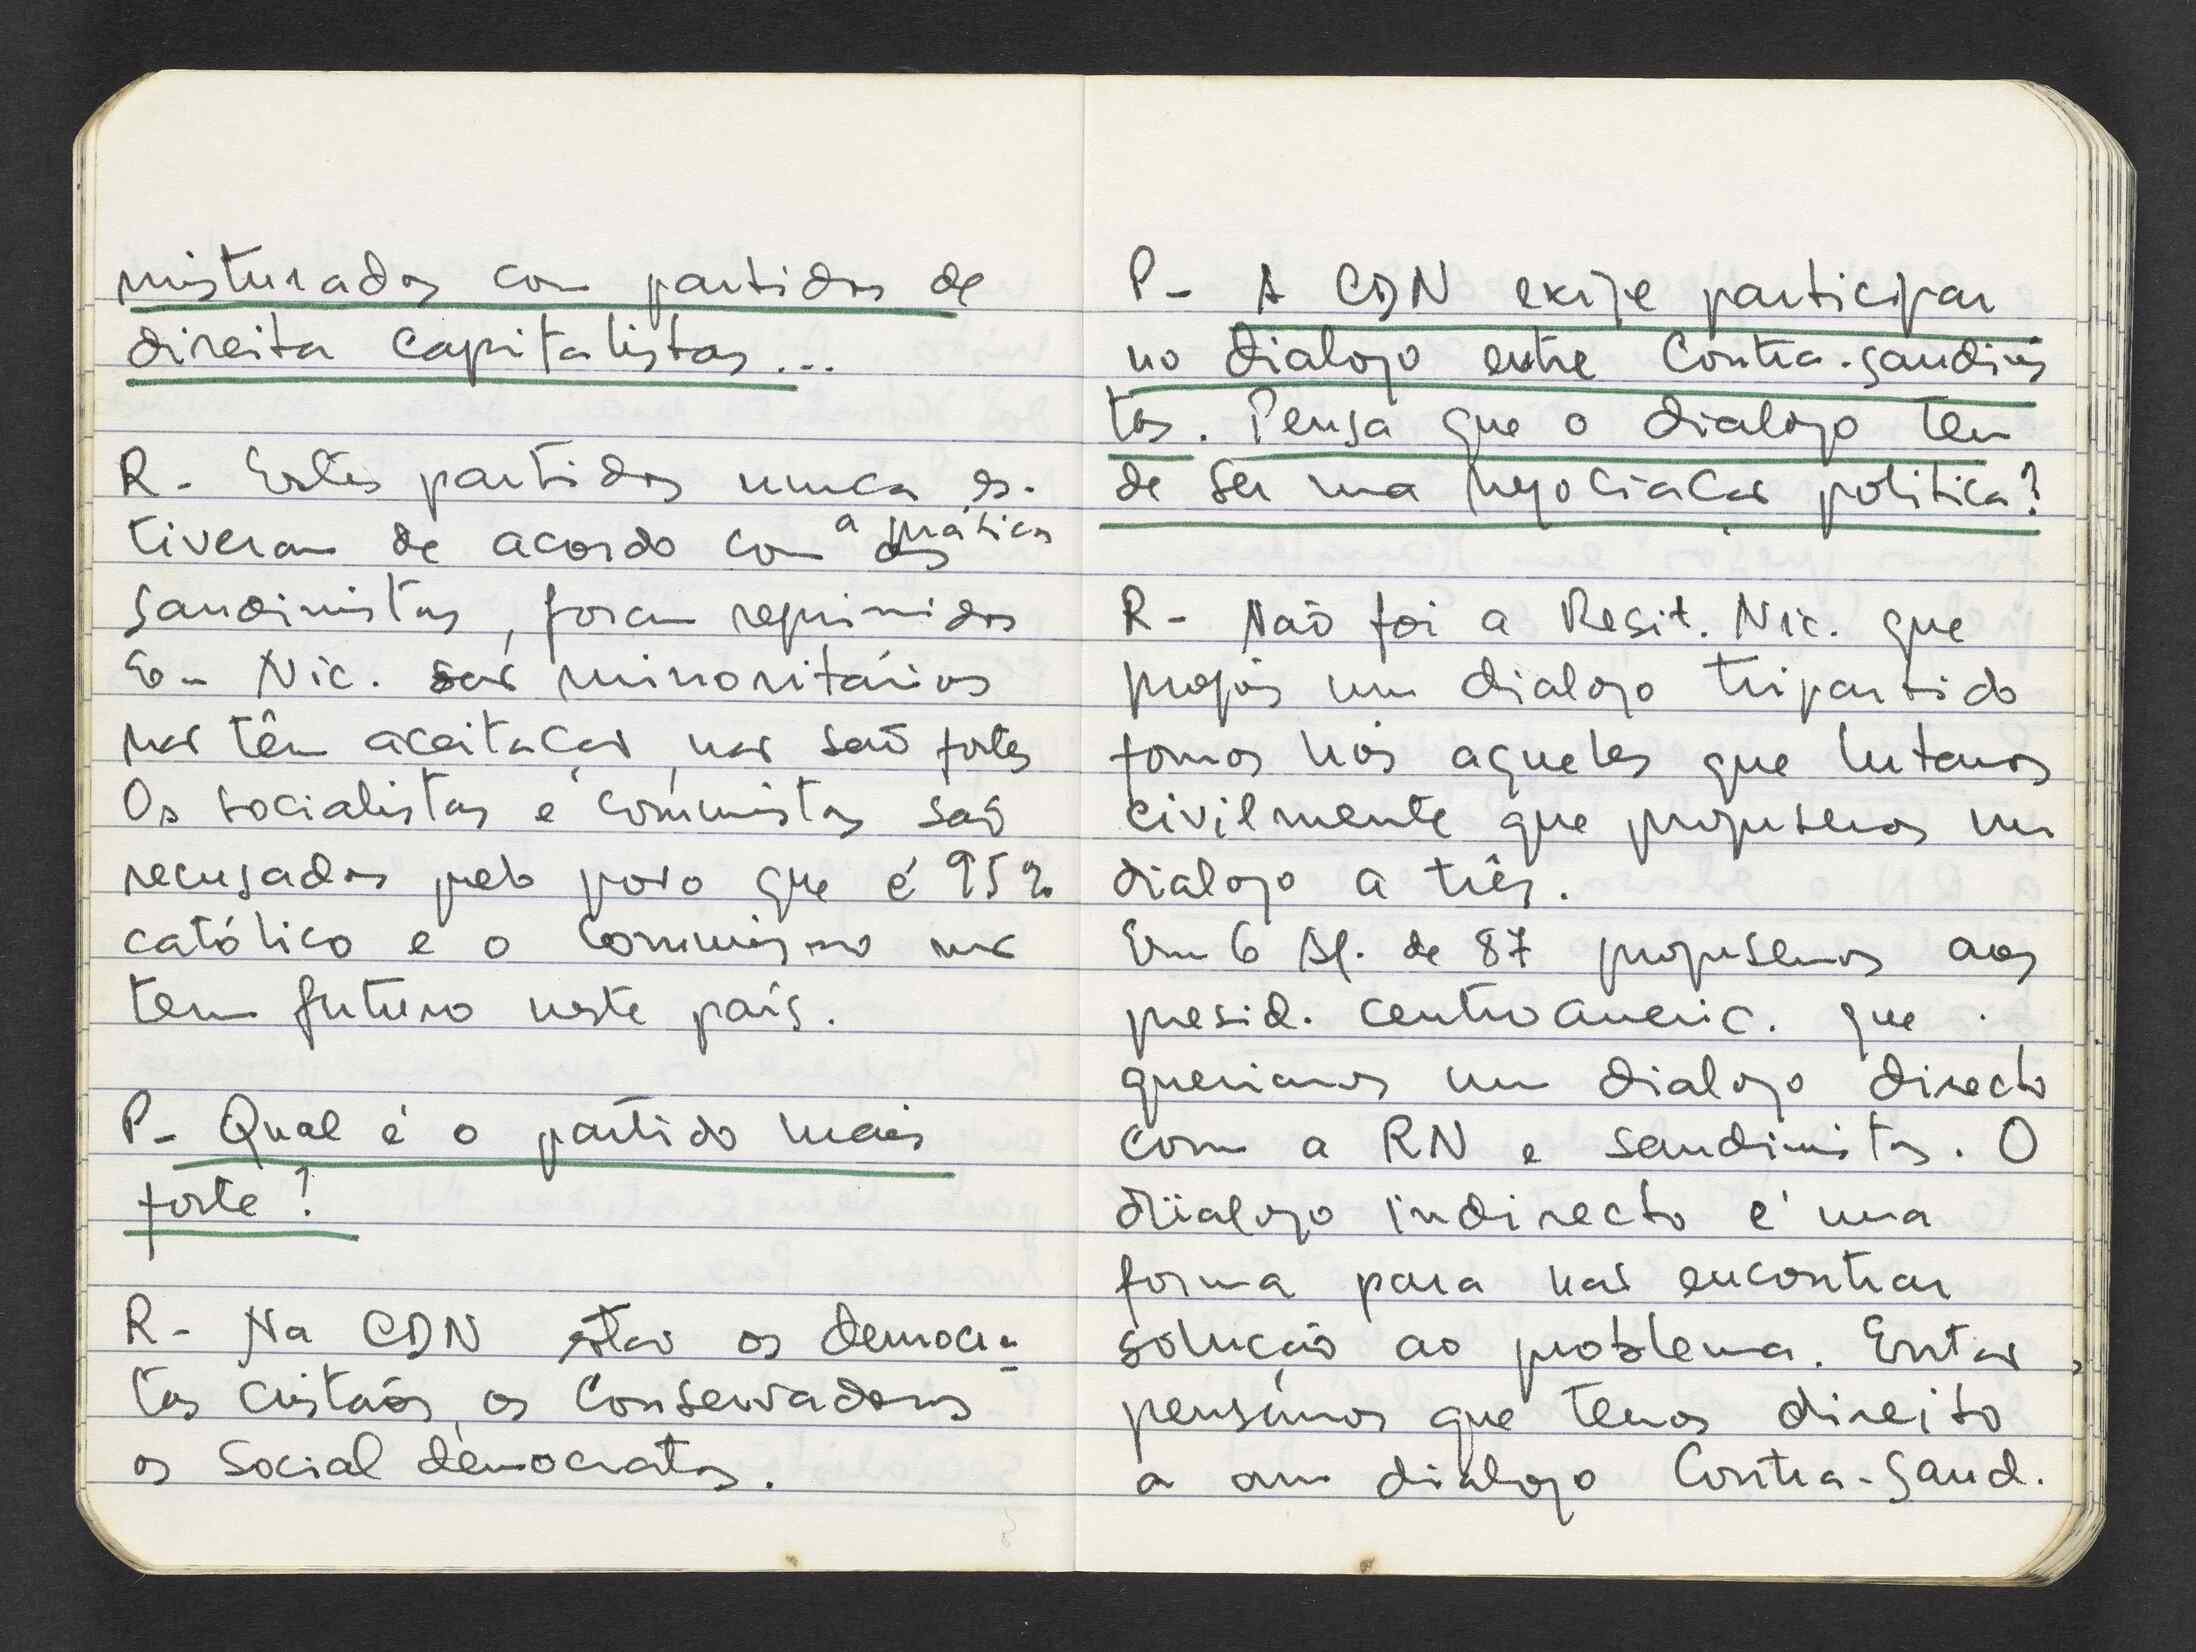 misturados com partidos de
direita capitalistas...
R- Estes partidos nunca es-
tiveram de acordo com a prática dos
sandinistas, foram reprimidos
Em Nic. são minoritários
não têm aceitação, não são fortes
Os socialistas e comunistas são
recusados pelo povo que é 95%
católico e o comunismo não
tem futuro neste país.
P- Qual é o partido mais
forte?
R- Na CDN estão os democra-
tas cristãos, os conservadores
os social democratas.
P- A CDN exige participar
no dialogo entre Contra-sandinis
tas. Pensa que o dialogo tem
de ser uma negociação politica?
R- Não foi a Resit. Nic. que
propôs um dialogo tripartido
fomos nós aqueles que lutamos
civilmente que propusemos um
dialogo a três.
Em 6 de 87 propusemos aos
presid. centroameric. que
queriamos um dialogo directo
com a RN e sandinistas. O
dialogo indirecto é uma
forma para não encontrar
solução ao problema. Então,
pensámos que temos direito
a um dialogo Contra-Sand.